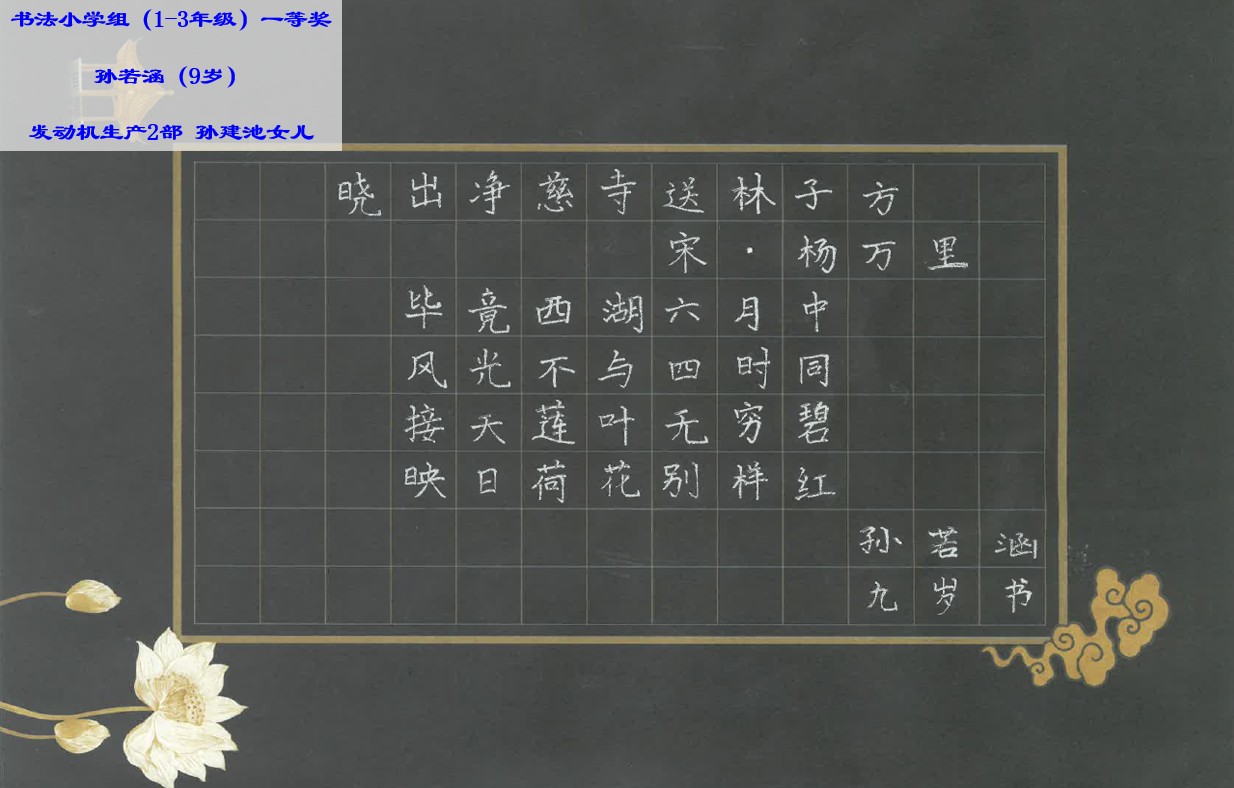 书法小学组（1-3年级）一等奖
孙若涵（9岁）
发动机生产2部 孙建池女儿
晓出净慈寺送林子方
宋·杨万里
毕竟西湖六月中
风光不与四时同
接天莲叶无穷碧
映日荷花别样红
孙若涵
九岁书